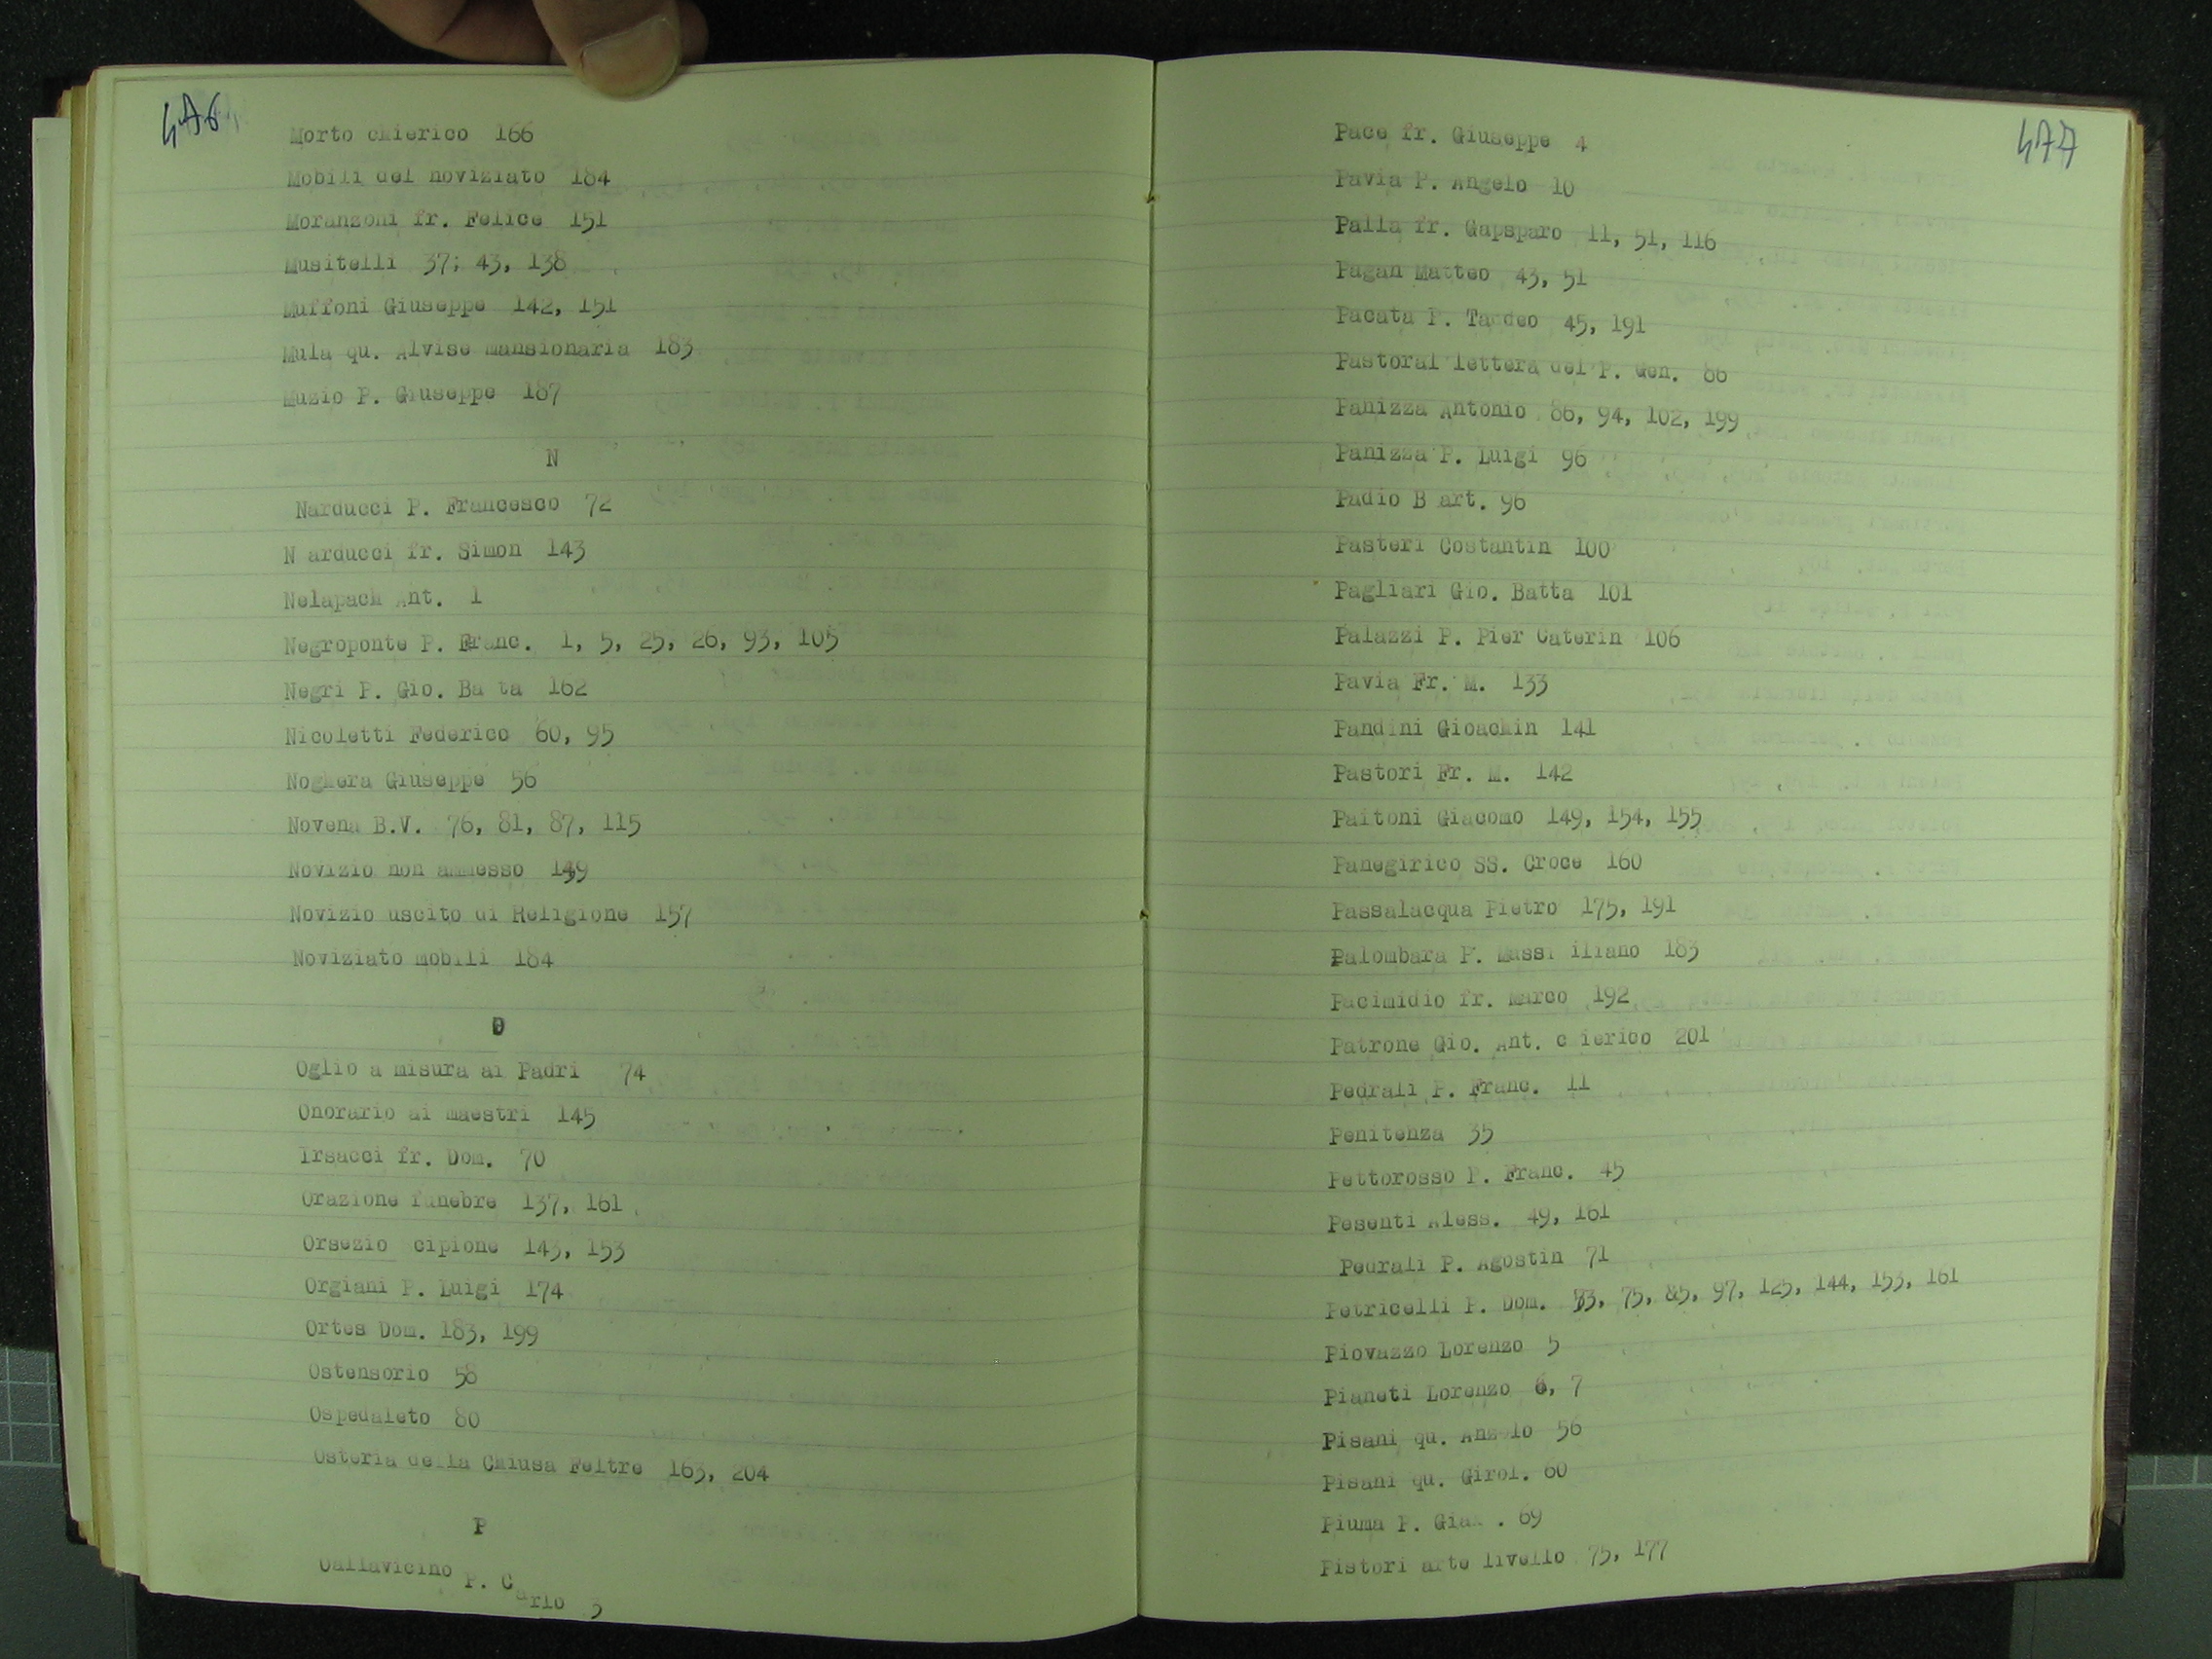 476
Morto chierico 166
Mobili del noviziato 184
Moranzoni fr. Felice 151
Musitelli 37; 43, 138
Muffoni Giuseppe 142, 151
Mula qu. Alvise mansionaria 183
Muzio P. Giuseppe 187
N
Narducci P. Francesco 72
N arducci fr. Simon 143
Nelapach Ant. 1
Negroponte P. Franc. 1, 5, 25, 26, 93, 105
Negri P. Gio. Ba ta 162
Nicoletti Federico 60, 95
Noghera Giuseppe 56
Novena B.V. 76, 81, 87, 115
Novizio non ammesso 149
Novizio uscito di Religione 157
Noviziato mobili 184
O
Oglio a misura ai Padri 74
Onorario ai maestri 145
Irsacci fr. Dom. 70
Orazione funebre 137, 161
Orsezio cipione 143, 153
Orgiani P. Luigi 174
Ortes Dom. 183, 199
Ostensorio 58
Ospedaleto 80
Osteria della Chiusa Feltre 163, 204
P
Oallavicino P. Carlo 3
477
Pace fr. Giuseppe 4
Pavia P. Angelo 10
Palla fr. Gapsparo 11, 51, 116
Pagan Matteo 43, 51
Pacata P. Taddeo 45, 191
Pastoral lettera del P. Gen. 86
Panizza Antonio 86, 94, 102, 199
Panizza P. Luigi 96
Padio B art. 96
Pasteri Costantin 100
Pagliari Gio. Batta 101
Palazzi P. Pier Caterin 106
Pavia Fr. M. 133
Pandini Gioachin 141
Pastori Fr. M. 142
Paitoni Giacomo 149, 154, 155
Panegirico SS. Croce 160
Passalacqua Pietro 175, 191
Palombara P. Massi iliano 183
Pacimidio fr. Marco 192
Patrone Gio. Ant. c ierico 201
Pedrali P. Franc. 11
Penitenza 35
Pettorosso P. Franc. 45
Pesenti Aless. 49, 161
Pedrali P. Agostin 71
Petricelli P. Dom. 73, 75, 85, 97, 125, 144, 153, 161
Piovazzo Lorenzo 5
Pianeti Lorenzo 6, 7
Pisani qu. Anzolo 56
Pisani qu. Girol. 60
Piuma P. Gia . 69
Pistori arte livello 75, 177